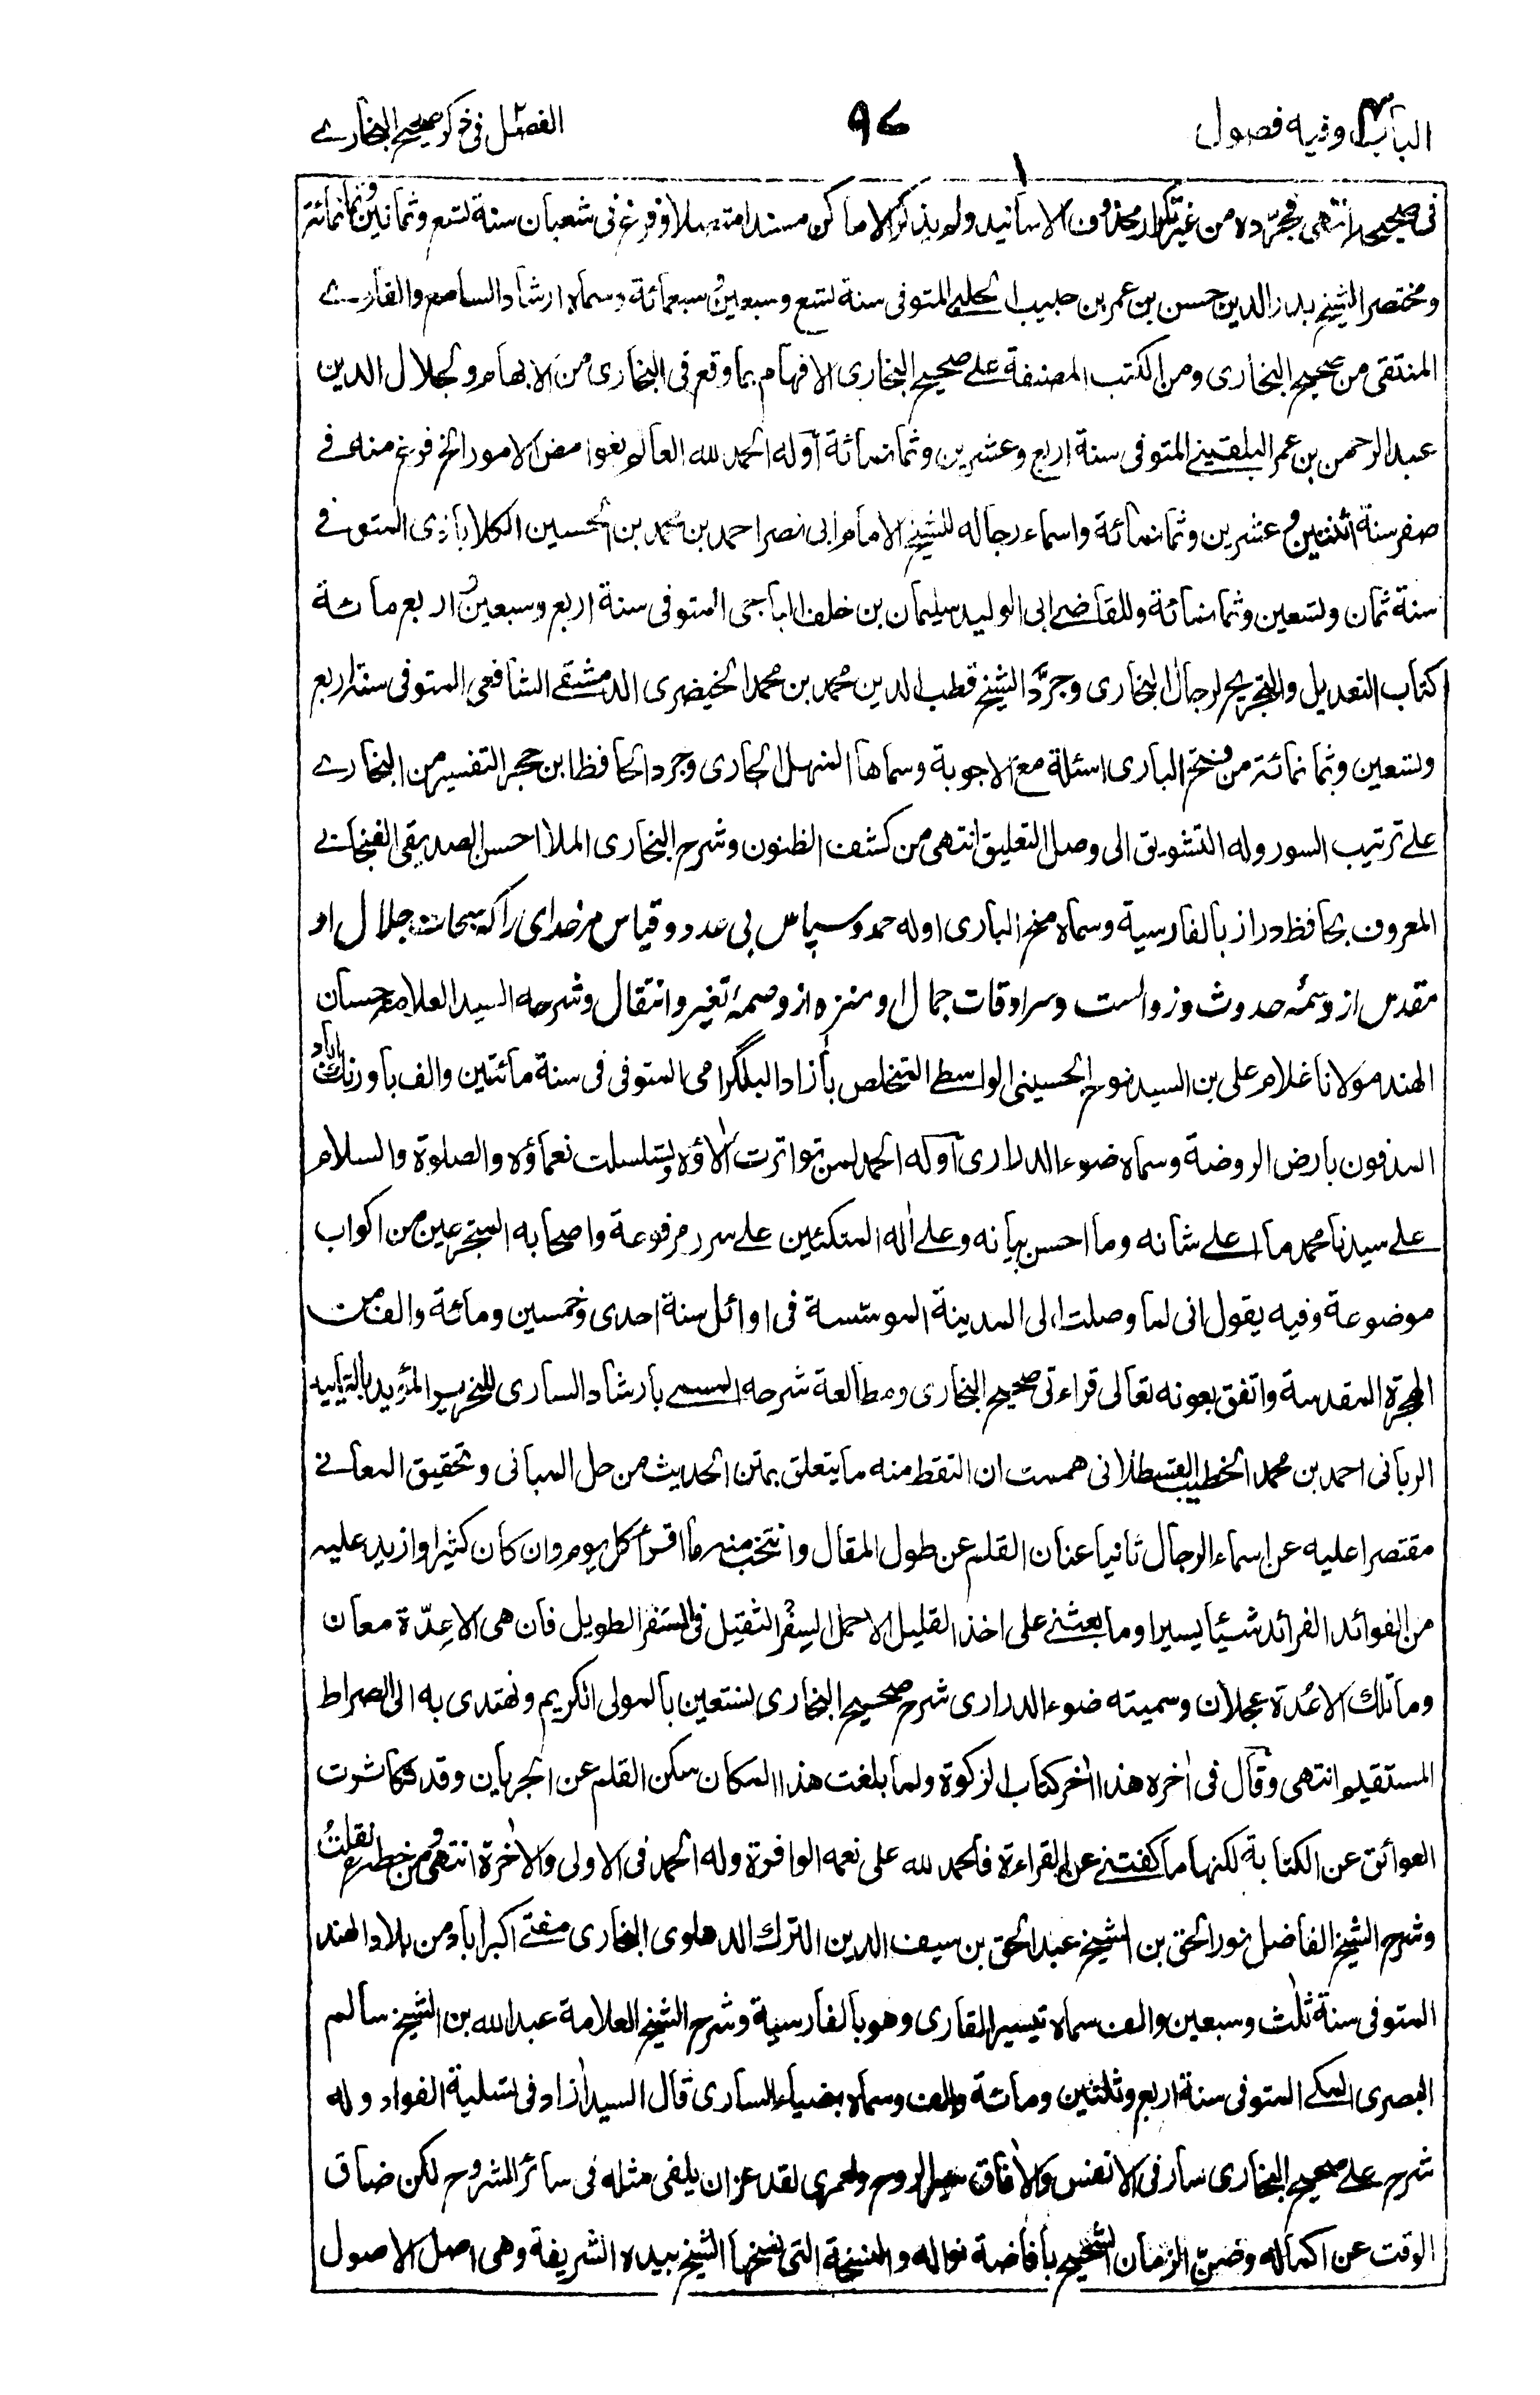 الباب وفيه فصول
٩٧
الفصل فى ذكر صحيح البخارے
فى صحيحه انتهى فجرده من غير تكرار محذوف الاسانيد ولم يذكر الا ما كان مسندا متصلا وفرغ فى شعبان سنة تسع وثمانين وثمانمائة
ومختصر الشيخ بدر الدين حسن بن عمر بن حبيب الحلبى المتوفى سنة تسع وسبعين وسبعمائة وسماه ارشاد السامع والقارے
المنتقى من صحيح البخارى ومن الكتب المصنفة علے صحيح البخارى الافهام بما وقع فى البخارى من الابهام ولجلال الدين
عبد الرحمن بن عمر البلقينے المتوفى سنة اربع وعشرين وثمانمائة اوله الحمد لله العالم بغوامض الامور الخ فرغ منه فے
صفر سنة اثنتين وعشرين وثمانمائة واسماء رجاله للشيخ الامام ابى نصر احمد بن محمد بن الحسين الكلاباذى المتوفے
سنة ثمان وتسعين وثمانمائة وللقاضے ابى الوليد سليمان بن خلف الباجى المتوفى سنة اربع وسبعين واربع مائة
كتاب التعديل والتجريح لرجال البخارى وجرد الشيخ قطب الدين محمد بن محمد الخيضرى الدمشقے الشافعى المتوفى سنة اربع
وتسعين وثمانمائة من فتح البارى اسئلة مع الاجوبة وسماها المنهل الجارى وجرد الحافظ ابن حجر التفسير من البخارے
علے ترتيب السور وله التشويق الى وصل التعليق انتهى من كشف الظنون وشرح البخارى الملا احسن الصديقى الفنجابے
المعروف بحافظ دراز بالفارسية وسماه منح البارى اوله حمد وسپاس بى عدد وقياس مر خداى را كه سبحات جلال او
مقدس از وسمۀ حدوث وزوالست وسرادقات جمال او منزه از وصمۀ تغير وانتقال وشرحه السيد العلامة حسان
الهند مولانا غلام على بن السيد نوح الحسينى الواسطے المتخلص بآزاد البلگرامى المتوفى فى سنة مائتين والف باورنگ اٰباد
المدفون بارض الروضة وسماه ضوء الدرارى اوله الحمد لمن تواترت اٰلاؤه وتسلسلت نعماؤه والصلوة والسلام
علے سيدنا محمد ما اعلے شانه وما احسن بيانه وعلے اٰله المتكئين علے سرر مرفوعة واصحابه المتجرعين من اكواب
موضوعة وفيه يقول انى لما وصلت الى المدينة المؤسسة فى اوائل سنة احدى وخمسين ومائة والف من
الهجرة المقدسة واتفق بعونه تعالى قراءتى صحيح البخارى ومطالعة شرحه المسمے بارشاد السارى للنحرير المؤيد بالتاييد
الربانى احمد بن محمد الخطيب القسطلانى هممت ان التقط منه ما يتعلق بمتن الحديث من حل المبانى وتحقيق المعانے
مقتصرا عليه عن اسماء الرجال ثانيا عنان القلم عن طول المقال وانتخب منه ما اقرأ كل يوم وان كان كثيرا وازيد عليه
من الفوائد الفرائد شيئا يسيرا وما بعثنے على اخذ القليل الا حمل السِفر الثقيل فى السَفر الطويل فان هى الا عِدّة معان
وما تلك الا عُدة عجلان وسميته ضوء الدرارى شرح صحيح البخارى نستعين بالمولى الكريم ونهتدى به الى الصراط
المستقيم انتهى وقال فى اٰخره هذا اٰخر كتاب الزكوة ولما بلغت هذا المكان سكن القلم عن الجريان وقد تكاثرت
العوائق عن الكتابة لكنها ما كفتنے عن القراءة فالحمد لله على نعمه الوافرة وله الحمد فى الاولى والاٰخرة انتهى ومن خطه نقلتُ
وشرح الشيخ الفاضل نور الحق بن الشيخ عبد الحق بن سيف الدين الترك الدهلوى البخارى مفتے اكبراباد من بلاد الهند
المتوفى سنة ثلٰث وسبعين والف سماه تيسير القارى وهو بالفارسية وشرح الشيخ العلامة عبد الله بن الشيخ سالم
البصرى المكے المتوفى سنة اربع وثلثين ومائة والف وسماه بضياء السارى قال السيد اٰزاد فى تسلية الفواد وله
شرح علے صحيح البخارى سار فى الانفس والاٰفاق سير الروح ولعمرى لقد عز ان يلفى مثله فى سائر الشروح لكن ضاق
الوقت عن اكماله وضنّ الزمان الشحيح بافاضة نواله والنسخة التى نسخها الشيخ بيده الشريفة وهى اصل الاصول